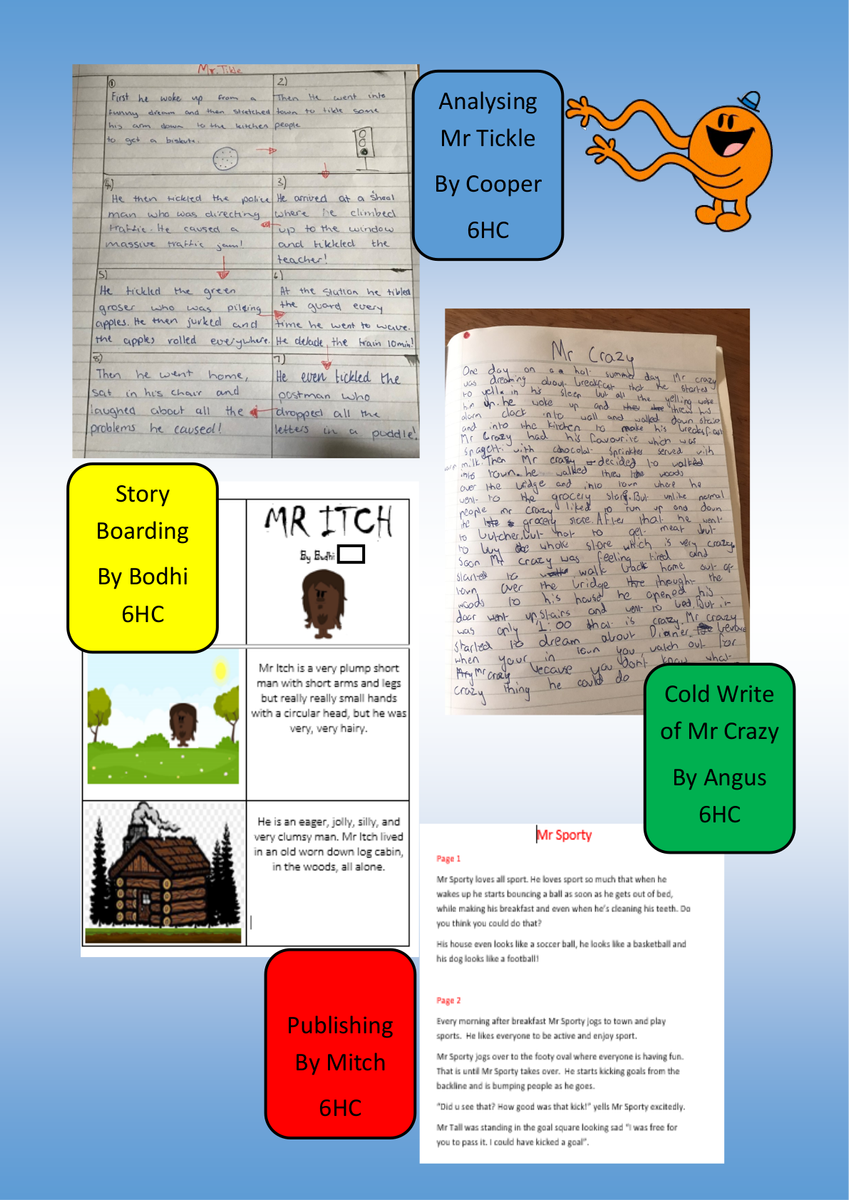 Mr. Tikle
1)
First he woke up from a
funny dream and then stretched
his arm down to the kitchen
to get a biskute.
2)
Then He went into
town to tikle some
people
4)
He then tickled the police
man who was directing
traffic. He caused a
massive traffic jam!
3)
He arrived at a shool
where he climbed
up to the window
and tikkled the
teacher!
5)
He tickled the green
groser who was pileing
apples. He then jurked and
the apples rolled everywhere.
6)
At the station he tikled
the guard every
time he went to wave.
He delade the train 10min!
8)
Then he went home,
sat in his chair and
laughed about all the
problems he caused!
7)
He even tickled the
postman who
dropped all the
letters in a puddle!
Analysing
Mr Tickle
By Cooper
6HC
Mr Crazy
One day on a hot summer day Mr crazy
was dreaming about breakfast that he started
to yell in his sleep but all the yelling woke
him up. he woke up and threw his
alarm clock into wall and walked down stairs
and into the kitchen to make his breakfast
Mr Crazy had his favourite which was
spagetti with chocolate sprinkles served with
milk. Then Mr crazy decided to walked
into town. he walked threw woods
over the bridge and into town where he
went to the grocery store. But unlike normal
people mr crazy liked to run up and down
the grocery store. After that he went
to butcher. but not to get meat but
to buy whole store which is very crazy
Soon Mr crazy was feeling tired and
started to walk back home out of
town over the bridge thought the
woods to his house he opened his
door went upstairs and went to bed. But it
was only 1:00 that is crazy. Mr crazy
started to dream about Dinner
when your in town you watch out for
Mr crazy because you dont know what
crazy thing he could do
Story
Boarding
By Bodhi
6HC
MR ITCH
By Bodhi
Mr Itch is a very plump short
man with short arms and legs
but really really small hands
with a circular head, but he was
very, very hairy.
He is an eager, jolly, silly, and
very clumsy man. Mr Itch lived
in an old worn down log cabin,
in the woods, all alone.
Cold Write
of Mr Crazy
By Angus
6HC
Mr Sporty
Page 1
Mr Sporty loves all sport. He loves sport so much that when he
wakes up he starts bouncing a ball as soon as he gets out of bed,
while making his breakfast and even when he's cleaning his teeth. Do
you think you could do that?
His house even looks like a soccer ball, he looks like a basketball and
his dog looks like a football!
Page 2
Every morning after breakfast Mr Sporty jogs to town and play
sports. He likes everyone to be active and enjoy sport.
Mr Sporty jogs over to the footy oval where everyone is having fun.
That is until Mr Sporty takes over. He starts kicking goals from the
backline and is bumping people as he goes.
"Did u see that? How good was that kick!" yells Mr Sporty excitedly.
Mr Tall was standing in the goal square looking sad "I was free for
you to pass it. I could have kicked a goal".
Publishing
By Mitch
6HC